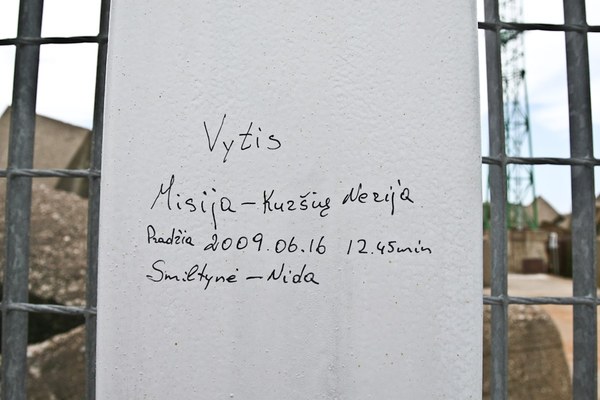 Vytis
Misija - Kuršių Nerija
Pradžia 2009.06.16 12.45min
Smiltynė - Nida